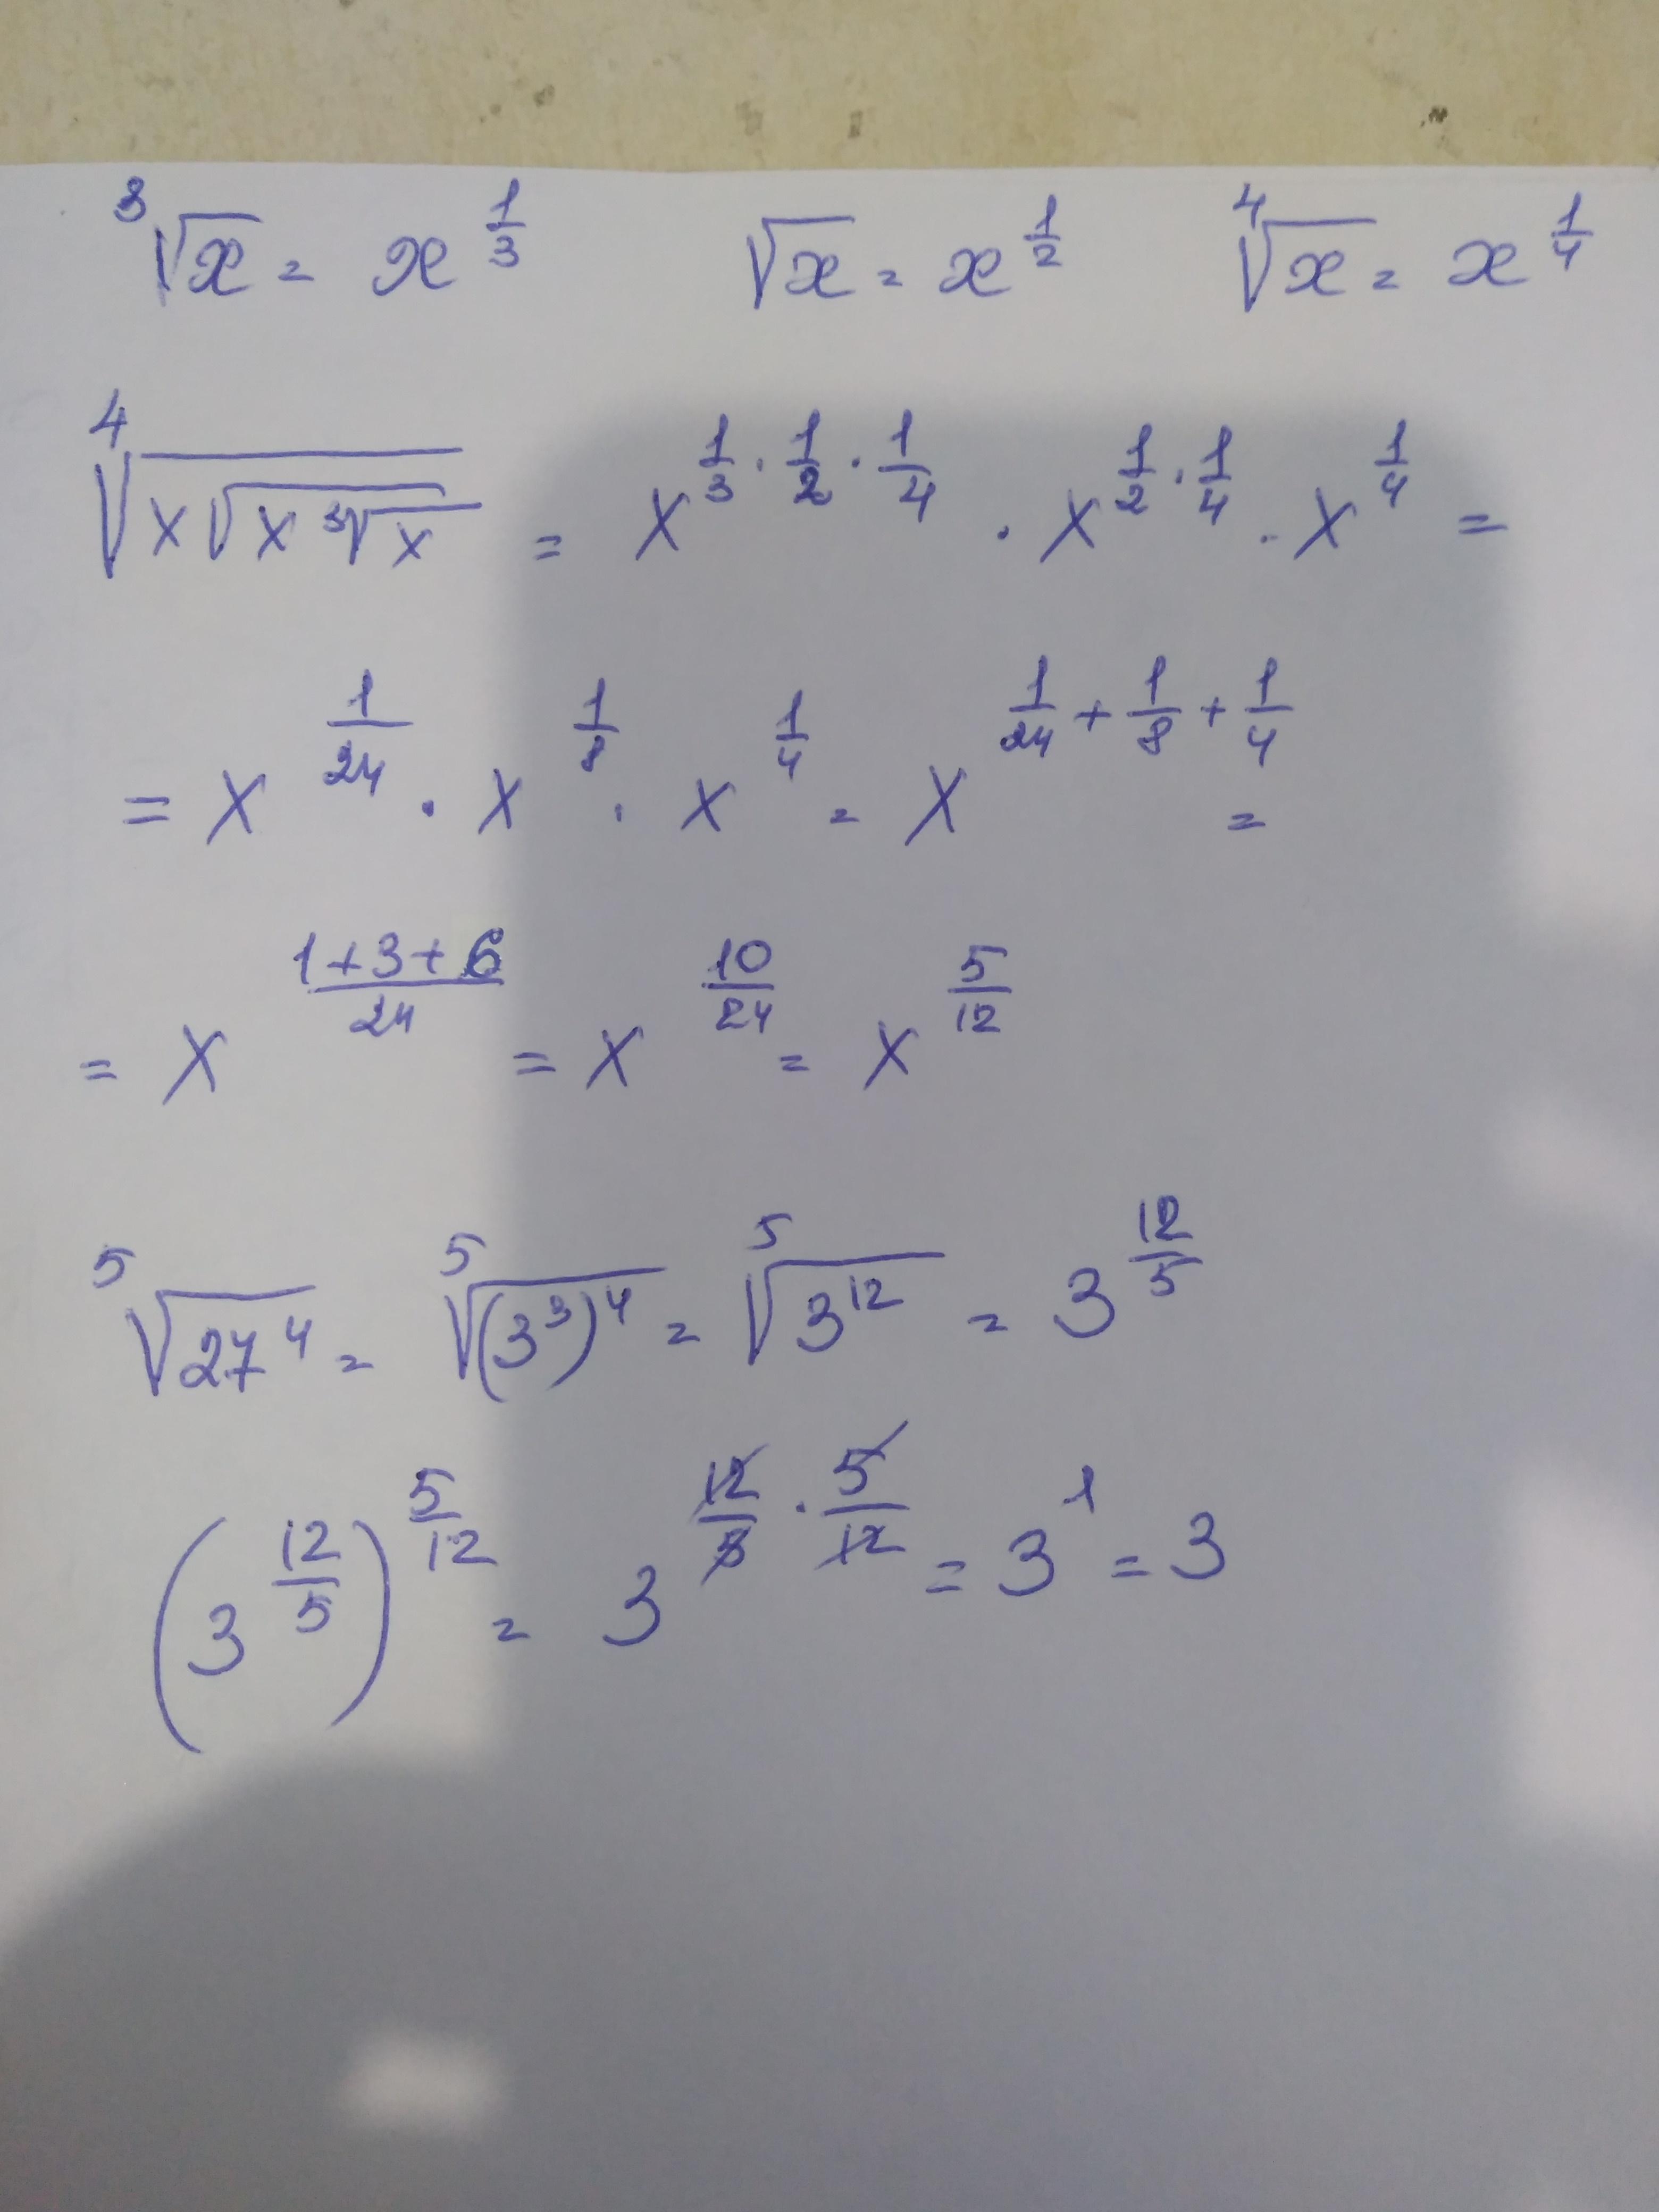 ³√x = x^(1/3) √x = x^(1/2) ⁴√x = x^(1/4)
⁴√(x√(x ³√x)) = x^(1/3 · 1/2 · 1/4) · x^(1/2 · 1/4) · x^(1/4) =
= x^(1/24) · x^(1/8) · x^(1/4) = x^(1/24 + 1/8 + 1/4) =
= x^((1+3+6)/24) = x^(10/24) = x^(5/12)
⁵√(27⁴) = ⁵√((3³)⁴) = ⁵√(3¹²) = 3^(12/5)
(3^(12/5))^(5/12) = 3^(12/5 · 5/12) = 3¹ = 3